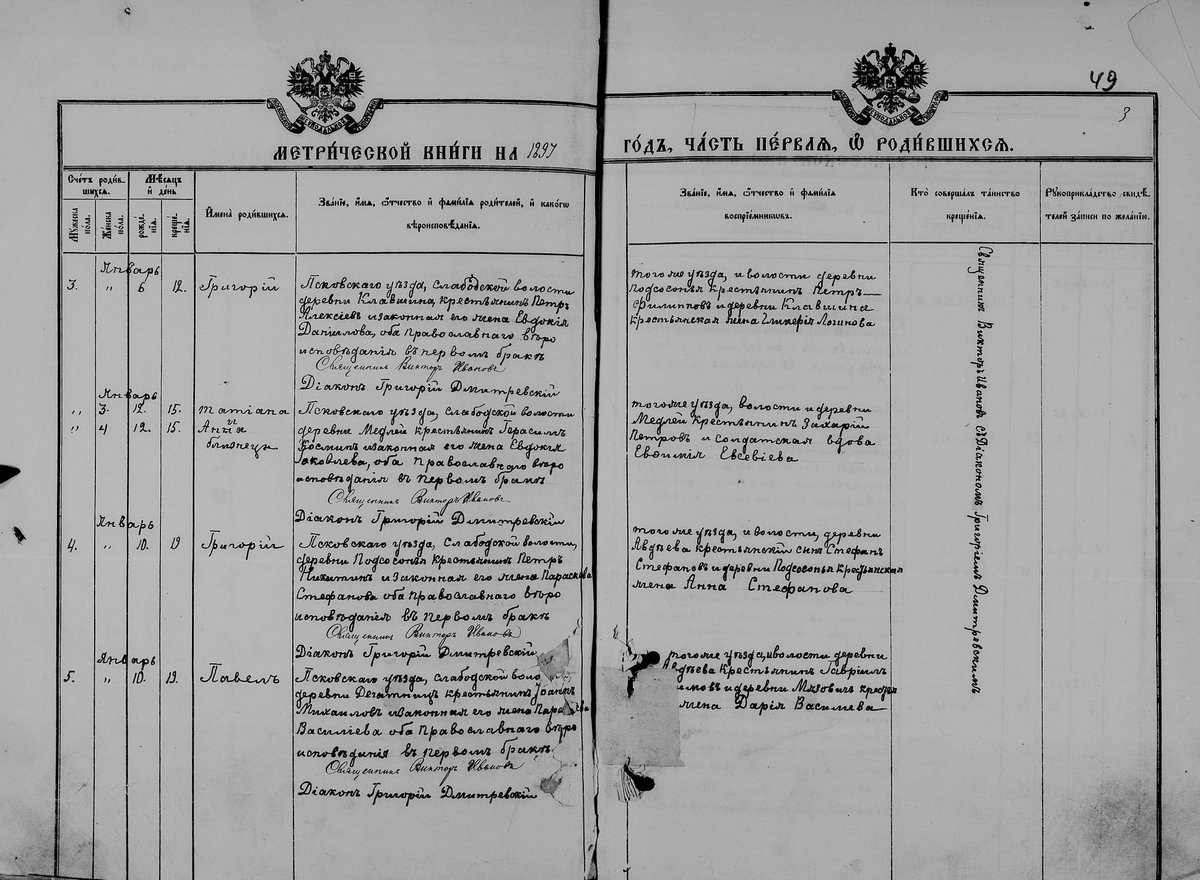 49
3
МЕТРИ́ЧЕСКОЙ КНИ́ГИ НА 1897
ГО́ДЪ, ЧА́СТЬ ПЕ́РВАЯ, Ѡ РОДИ́ВШИХСЯ.
Сче́тъ роди́в-
шихся.
Мѣ́сяцъ
и де́нь
Му́жеска по́ла.
Же́нска по́ла.
рожде́нія.
креще́нія.
Имена̀ роди́вшихся.
Зва́нїе, и́мя, ѻ́тчество и фами́лїя роди́телей, и како́гѡ
вѣроисповѣ́данїя.
Зва́нїе, и́мя, ѻ́тчество и фами́лїя
воспрїе́мниковъ.
Кто̀ соверша́лъ та́инство
креще́нїя.
Рукоприкла́дство свидѣ́-
телей за́писи по жела́нїю.
Январь
3. " 6 12. Григорій
Псковскаго уѣзда, Слабодской волости
деревни Клавшина, крестьянинъ Петръ
Алексіевъ и законная его жена Евдокія
Даніилова, оба Православнаго вѣро
исповѣданія въ первомъ бракѣ
Священникъ Викторъ Ивановъ
Діаконъ Григорій Дмитревскій
тогоже уѣзда, и волости деревни
Подсосонья крестьянинъ Петръ
Филипповъ и деревни Клавшина
крестьянская жена Гликерія Логинова
Январь
" 3. 12. 15. Татіана
" 4 12. 15. и Анна
близнецы
Псковскаго уѣзда, Слабодской волости
деревни Медлей крестьянинъ Герасимъ
Космин и законная его жена Евдокія
Іаковлева, оба Православнаго вѣро
исповѣданія въ первомъ бракѣ
Священникъ Викторъ Ивановъ
Діаконъ Григорій Дмитревскій
тогоже уѣзда, волости и деревни
Медлей крестьянинъ Захарій
Петровъ и Солдатская вдова
Евфимія Евсевіева
Январь
4. " 10. 19 Григорій
Псковскаго уѣзда, Слабодской волости,
деревни Подсосонья крестьянинъ Петръ
Никитинъ и законная его жена Параскева
Стефанова оба Православнаго вѣро
исповѣданія въ первомъ бракѣ
Священникъ Викторъ Ивановъ
Діаконъ Григорій Дмитревскій
тогоже уѣзда, и волости, деревни
Авдѣева крестьянскій сынъ Стефанъ
Стефановъ и деревни Подсосонья крестьянская
жена Анна Стефанова
Январь
5. " 10. 19. Павелъ
Псковскаго уѣзда, Слабодской воло
деревни крестьянинъ Іоаннъ
Михаиловъ и законная его жена
Василіева оба Православнаго вѣро
исповѣданія въ первомъ бракѣ
Священникъ Викторъ Ивановъ
Діаконъ Григорій Дмитревскій
тогоже уѣзда, и волости деревни
Авдѣева Крестьянинъ Гавріилъ
и деревни
жена Дарія Василіева
Священникъ Викторъ Ивановъ съ Діакономъ Григоріемъ Дмитревскимъ